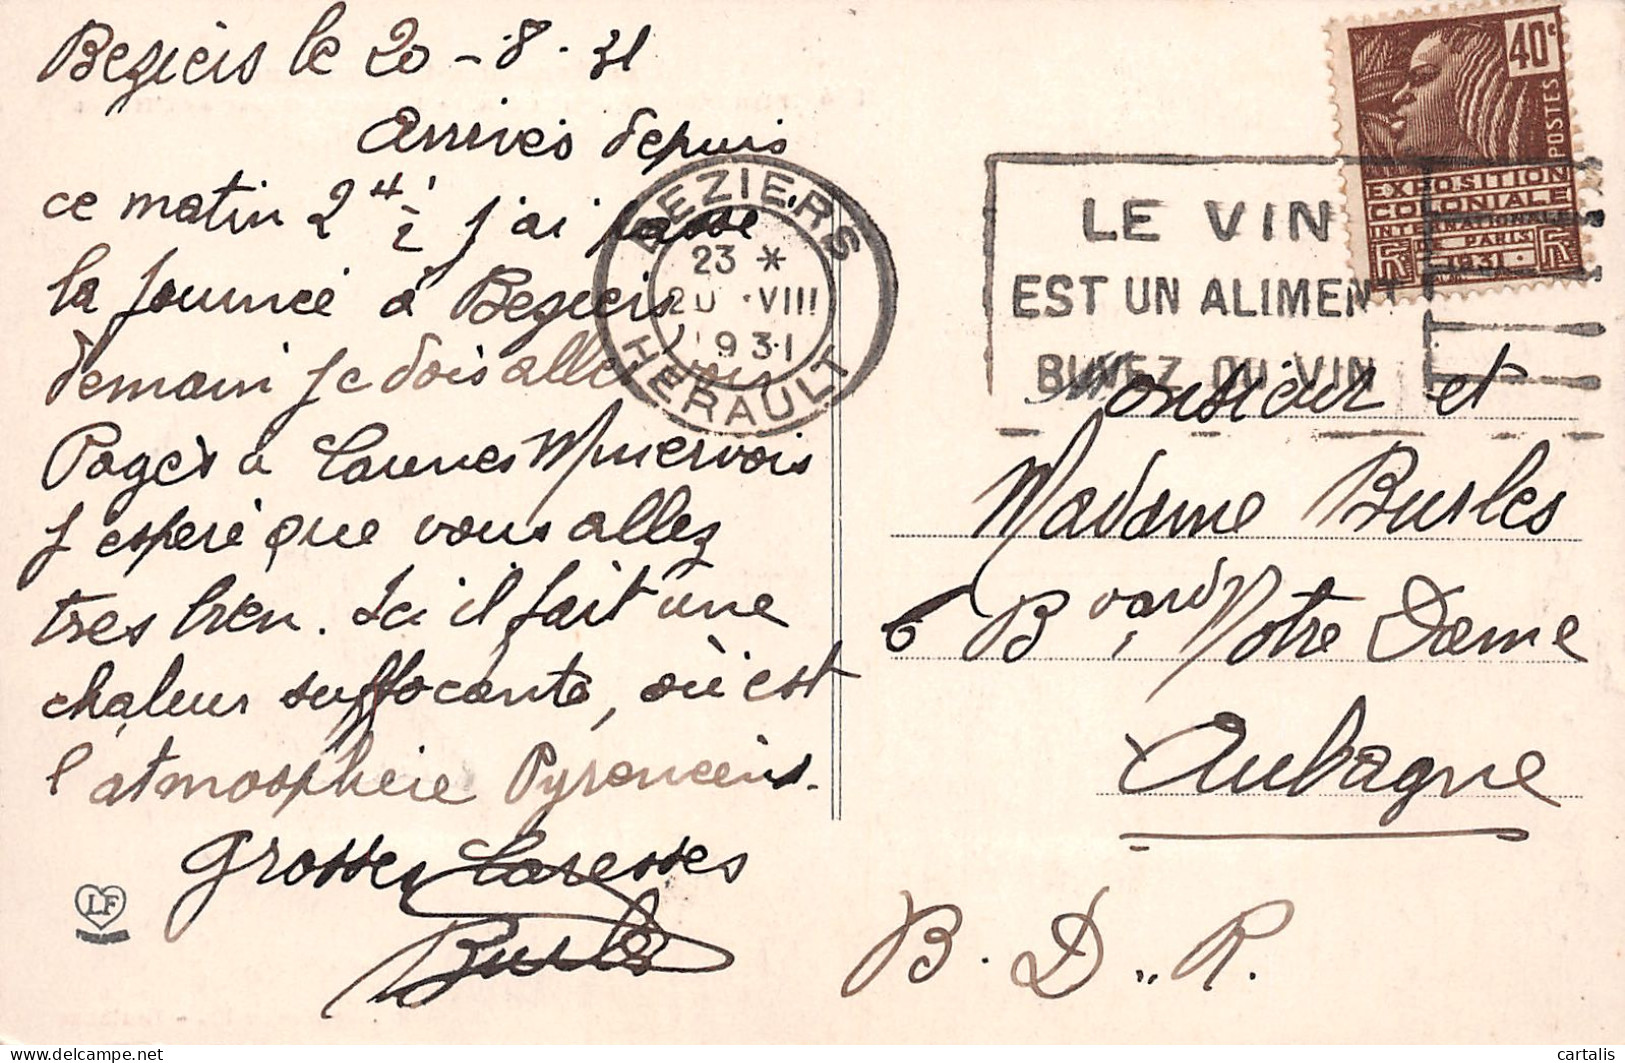 Beziers le 20 - 8 - 31
Arrivés depuis
ce matin 2 h ½ j'ai passé
la journée à Beziers
demain je dois aller voir
Pagès à Caunes Minervois
J espere que vous allez
tres bien. Ici il fait une
chaleur suffocante, où est
l'atmosphère Pyreneéns.
Grosses Caresses
Burles
LF
BEZIERS
23 *
20 - VIII
1931
HERAULT
LE VIN
EST UN ALIMENT
BUVEZ DU VIN
40c
POSTES
EXPOSITION
COLONIALE
INTERNATIONALE
DE PARIS
RF 1931 RF
Monsieur et
Madame Burles
6 Bvard Notre Dame
Aubagne
B. D.. R.
delcampe.net
cartalis